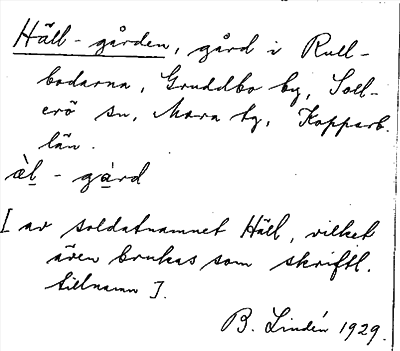 Häll-gården, gård i Rull-
bodarna, Gruddbo by, Soll-
erö sn, Mora tg, Kopparb.
län.
àl̲ - gà̲rd
[ av soldatnamnet Häll, vilket
även brukas som skriftl.
tillnamn ].
B. Lindén 1929.